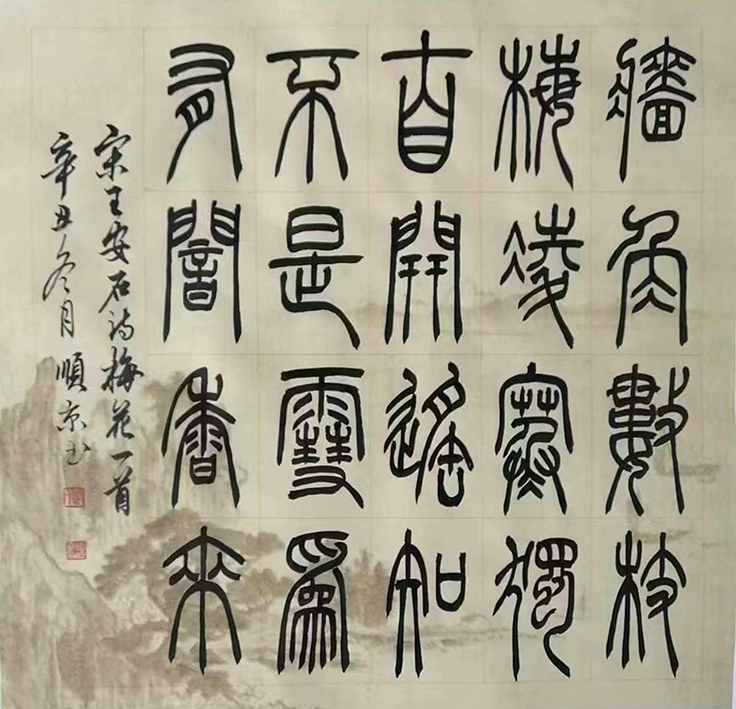 牆角數枝
梅凌寒獨
自開遙知
不是雪爲
有闇香來
宋王安石詩梅花一首
辛丑冬月順京书